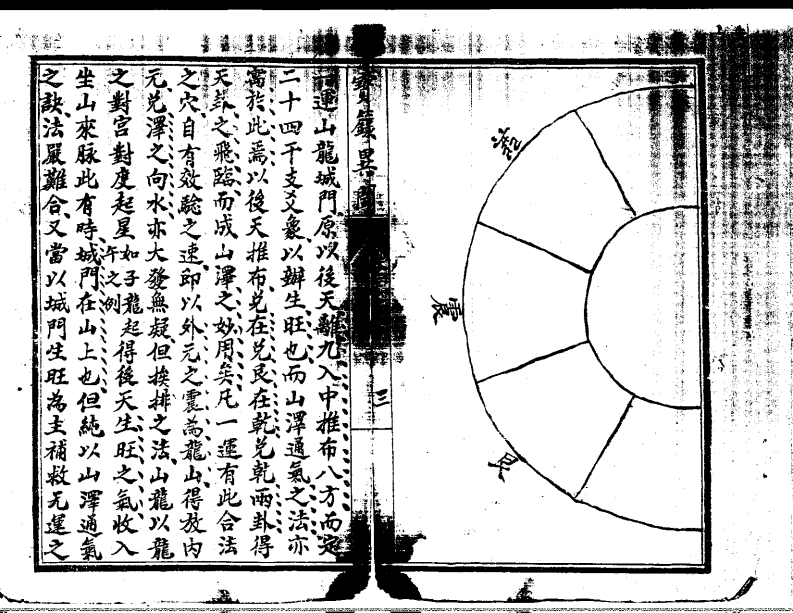 巽
震
艮
錄異聞
三
一運山龍城門原以後天離九入中推布八方而定
二十四干支爻象以辦生旺也而山澤通氣之法亦
寓於此焉以後天推布兌在兌艮在乾兌乾兩卦得
天卦之飛臨而成山澤之妙用矣凡一運有此合法
之穴自有效驗之速即以外元之震為龍山得放內
元兌澤之向水亦大發無疑但挨排之法山龍以龍
之對宮對度起星如子龍起午之例得後天生旺之氣收入
坐山來脉此有時城門在山上也但純以山澤通氣
之訣法嚴難合又當以城門生旺為主補救元運之